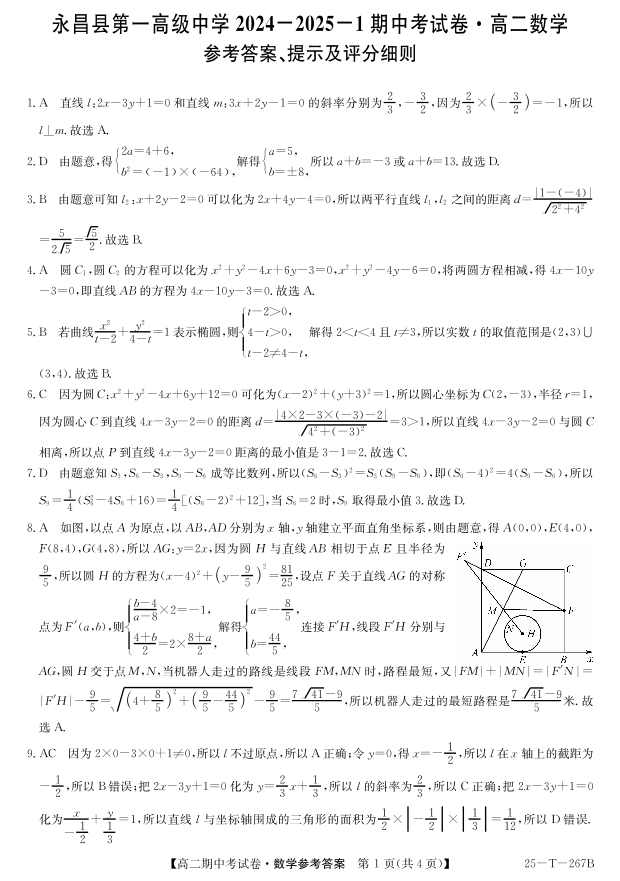 永昌县第一高级中学 2024—2025—1 期中考试卷·高二数学
参考答案、提示及评分细则
1. A 直线 l:2x-3y+1=0 和直线 m:3x+2y-1=0 的斜率分别为 2/3, -3/2, 因为 2/3×(-3/2)=-1, 所以
l⊥m. 故选 A.
2. D 由题意, 得 {2a=4+6, b²=(-1)×(-64), 解得 {a=5, b=±8, 所以 a+b=-3 或 a+b=13. 故选 D.
3. B 由题意可知 l₂:x+2y-2=0 可以化为 2x+4y-4=0, 所以两平行直线 l₁,l₂ 之间的距离 d=|1-(-4)|/√(2²+4²)
=5/(2√5)=√5/2. 故选 B.
4. A 圆 C₁, 圆 C₂ 的方程可以化为 x²+y²-4x+6y-3=0, x²+y²-4y-6=0, 将两圆方程相减, 得 4x-10y
-3=0, 即直线 AB 的方程为 4x-10y-3=0. 故选 A.
5. B 若曲线 x²/(t-2)+y²/(4-t)=1 表示椭圆, 则 {t-2>0, 4-t>0, t-2≠4-t, 解得 2<t<4 且 t≠3, 所以实数 t 的取值范围是(2,3)∪
(3,4). 故选 B.
6. C 因为圆 C:x²+y²-4x+6y+12=0 可化为(x-2)²+(y+3)²=1, 所以圆心坐标为 C(2,-3), 半径 r=1,
因为圆心 C 到直线 4x-3y-2=0 的距离 d=|4×2-3×(-3)-2|/√(4²+(-3)²)=3>1, 所以直线 4x-3y-2=0 与圆 C
相离, 所以点 P 到直线 4x-3y-2=0 距离的最小值是 3-1=2. 故选 C.
7. D 由题意知 S₃,S₆-S₃,S₉-S₆ 成等比数列, 所以(S₆-S₃)²=S₃(S₉-S₆), 即(S₆-4)²=4(S₉-S₆), 所以
S₉=1/4(S₆²-4S₆+16)=1/4[(S₆-2)²+12], 当 S₆=2 时, S₉ 取得最小值 3. 故选 D.
8. A 如图, 以点 A 为原点, 以 AB,AD 分别为 x 轴, y 轴建立平面直角坐标系, 则由题意, 得 A(0,0),E(4,0),
F(8,4),G(4,8), 所以 AG:y=2x, 因为圆 H 与直线 AB 相切于点 E 且半径为
9/5, 所以圆 H 的方程为(x-4)²+(y-9/5)²=81/25, 设点 F 关于直线 AG 的对称
点为 F′(a,b), 则 {(b-4)/(a-8)×2=-1, (4+b)/2=2×(8+a)/2, 解得 {a=-8/5, b=44/5, 连接 F′H, 线段 F′H 分别与
y
F′
D
G
C
M
F
N
H
A
E
B
x
AG, 圆 H 交于点 M,N, 当机器人走过的路线是线段 FM,MN 时, 路程最短, 又|FM|+|MN|=|F′N|=
|F′H|-9/5=√((4+8/5)²+(9/5-44/5)²)-9/5=(7√41-9)/5, 所以机器人走过的最短路程是(7√41-9)/5米. 故
选 A.
9. AC 因为 2×0-3×0+1≠0, 所以 l 不过原点, 所以 A 正确; 令 y=0, 得 x=-1/2, 所以 l 在 x 轴上的截距为
-1/2, 所以 B 错误; 把 2x-3y+1=0 化为 y=2/3x+1/3, 所以 l 的斜率为 2/3, 所以 C 正确; 把 2x-3y+1=0
化为 x/(-1/2)+y/(1/3)=1, 所以直线 l 与坐标轴围成的三角形的面积为 1/2×|-1/2|×|1/3|=1/12, 所以 D 错误.
【高二期中考试卷·数学参考答案 第 1 页(共 4 页)】 25—T—267B